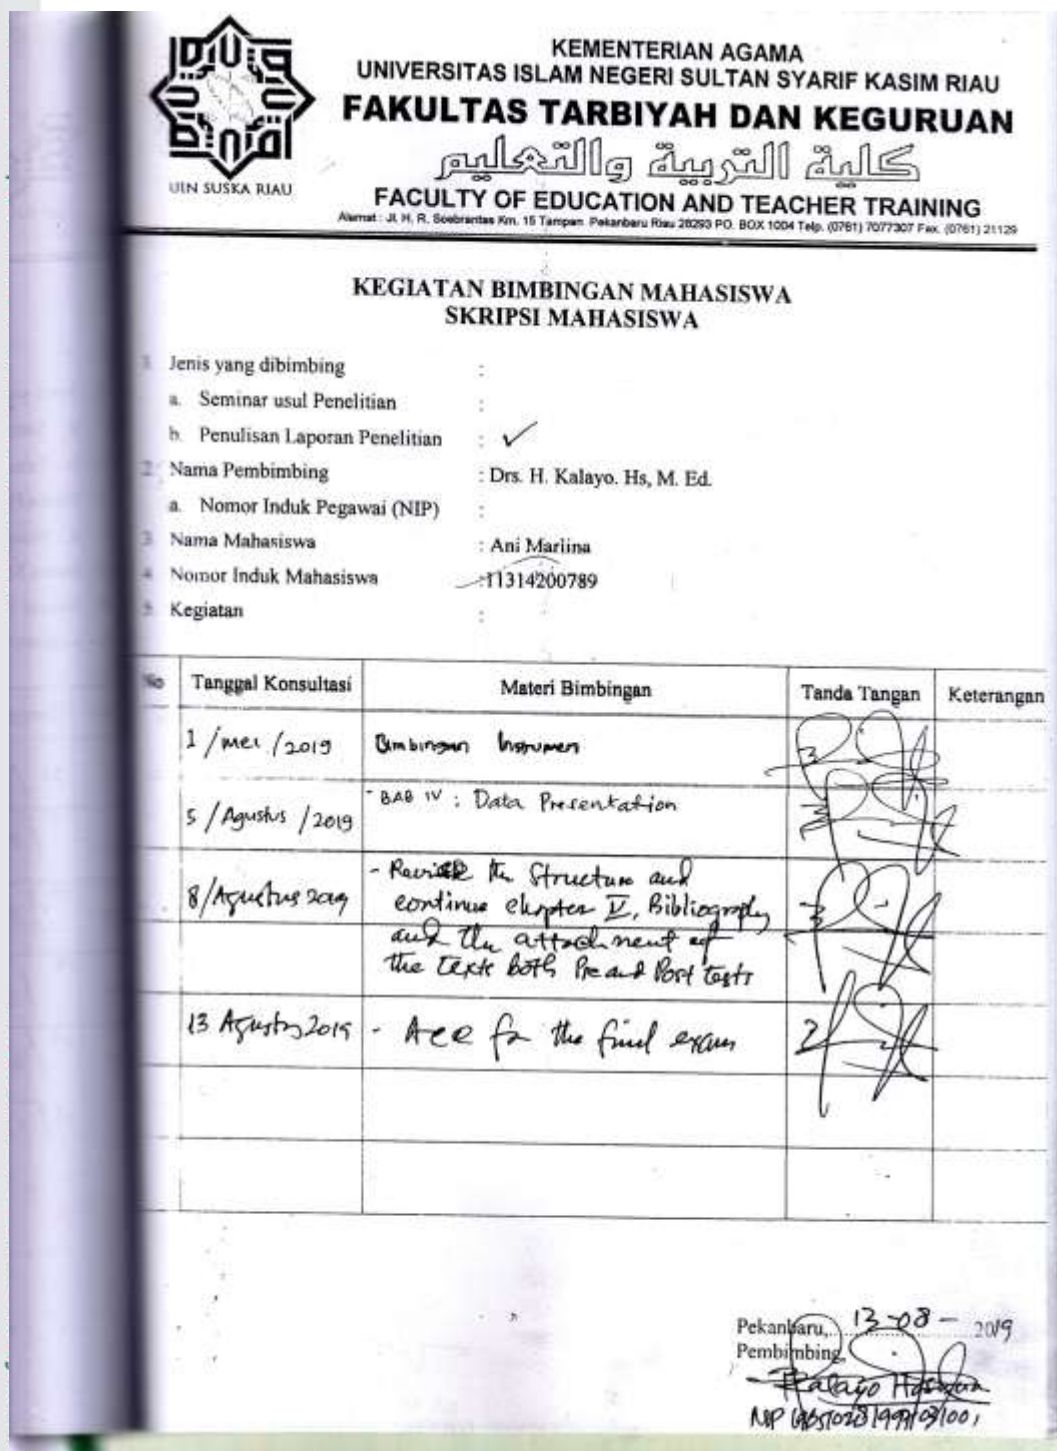 UIN SUSKA RIAU
KEMENTERIAN AGAMA
UNIVERSITAS ISLAM NEGERI SULTAN SYARIF KASIM RIAU
FAKULTAS TARBIYAH DAN KEGURUAN
كلية التربية والتعليم
FACULTY OF EDUCATION AND TEACHER TRAINING
Alamat : Jl. H. R. Soebrantas Km. 15 Tampan Pekanbaru Riau 28293 PO. BOX 1004 Telp. (0761) 7077307 Fax. (0761) 21129
KEGIATAN BIMBINGAN MAHASISWA
SKRIPSI MAHASISWA
1. Jenis yang dibimbing :
a. Seminar usul Penelitian :
b. Penulisan Laporan Penelitian : ✓
2. Nama Pembimbing : Drs. H. Kalayo. Hs, M. Ed.
a. Nomor Induk Pegawai (NIP) :
3. Nama Mahasiswa : Ani Marlina
4. Nomor Induk Mahasiswa :11314200789
5. Kegiatan :
No Tanggal Konsultasi Materi Bimbingan Tanda Tangan Keterangan
1 / mei / 2019 Bimbingan Instrumen
5 / Agustus / 2019 - BAB IV : Data Presentation
8/Agustus 2019 - Revise the Structure and
continue chapter V, Bibliography
and the attachment of
the texts both Pre and Post tests
13 Agustus 2019 - Acc for the final exam
Pekanbaru, 13-08- 2019
Pembimbing,
Kalayo Hasibuan
NIP